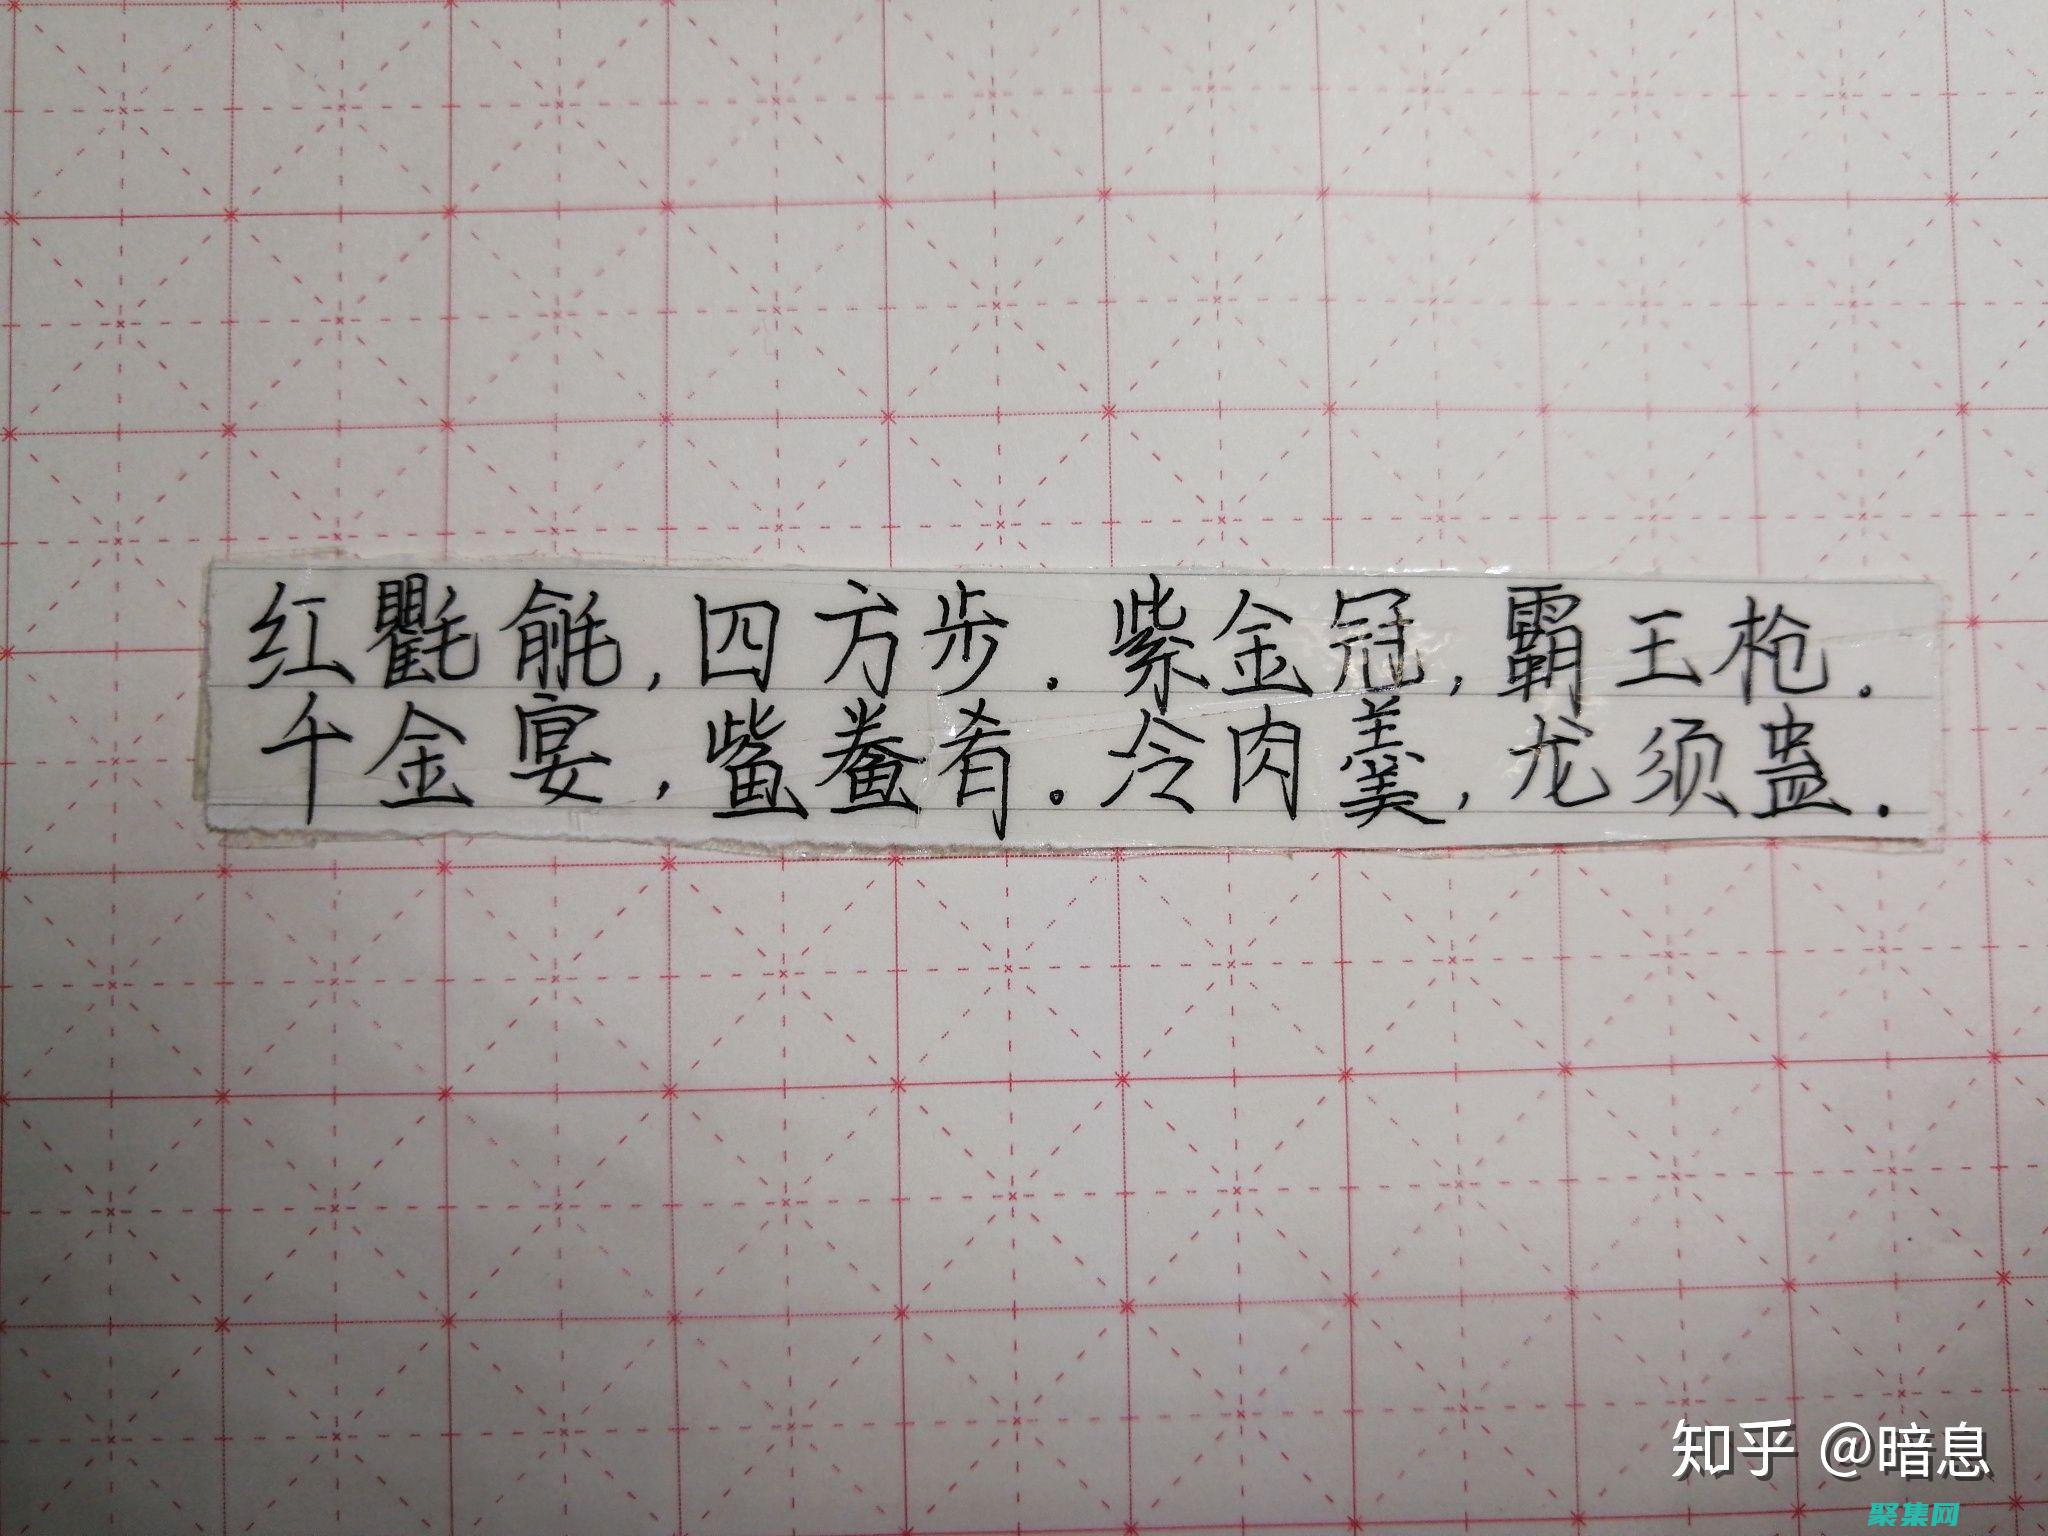 红氍毹,四方步.紫金冠,霸王枪.
千金宴,鲎鲞肴.冷肉羹,龙须蛊.
知乎 @暗息
聚集网